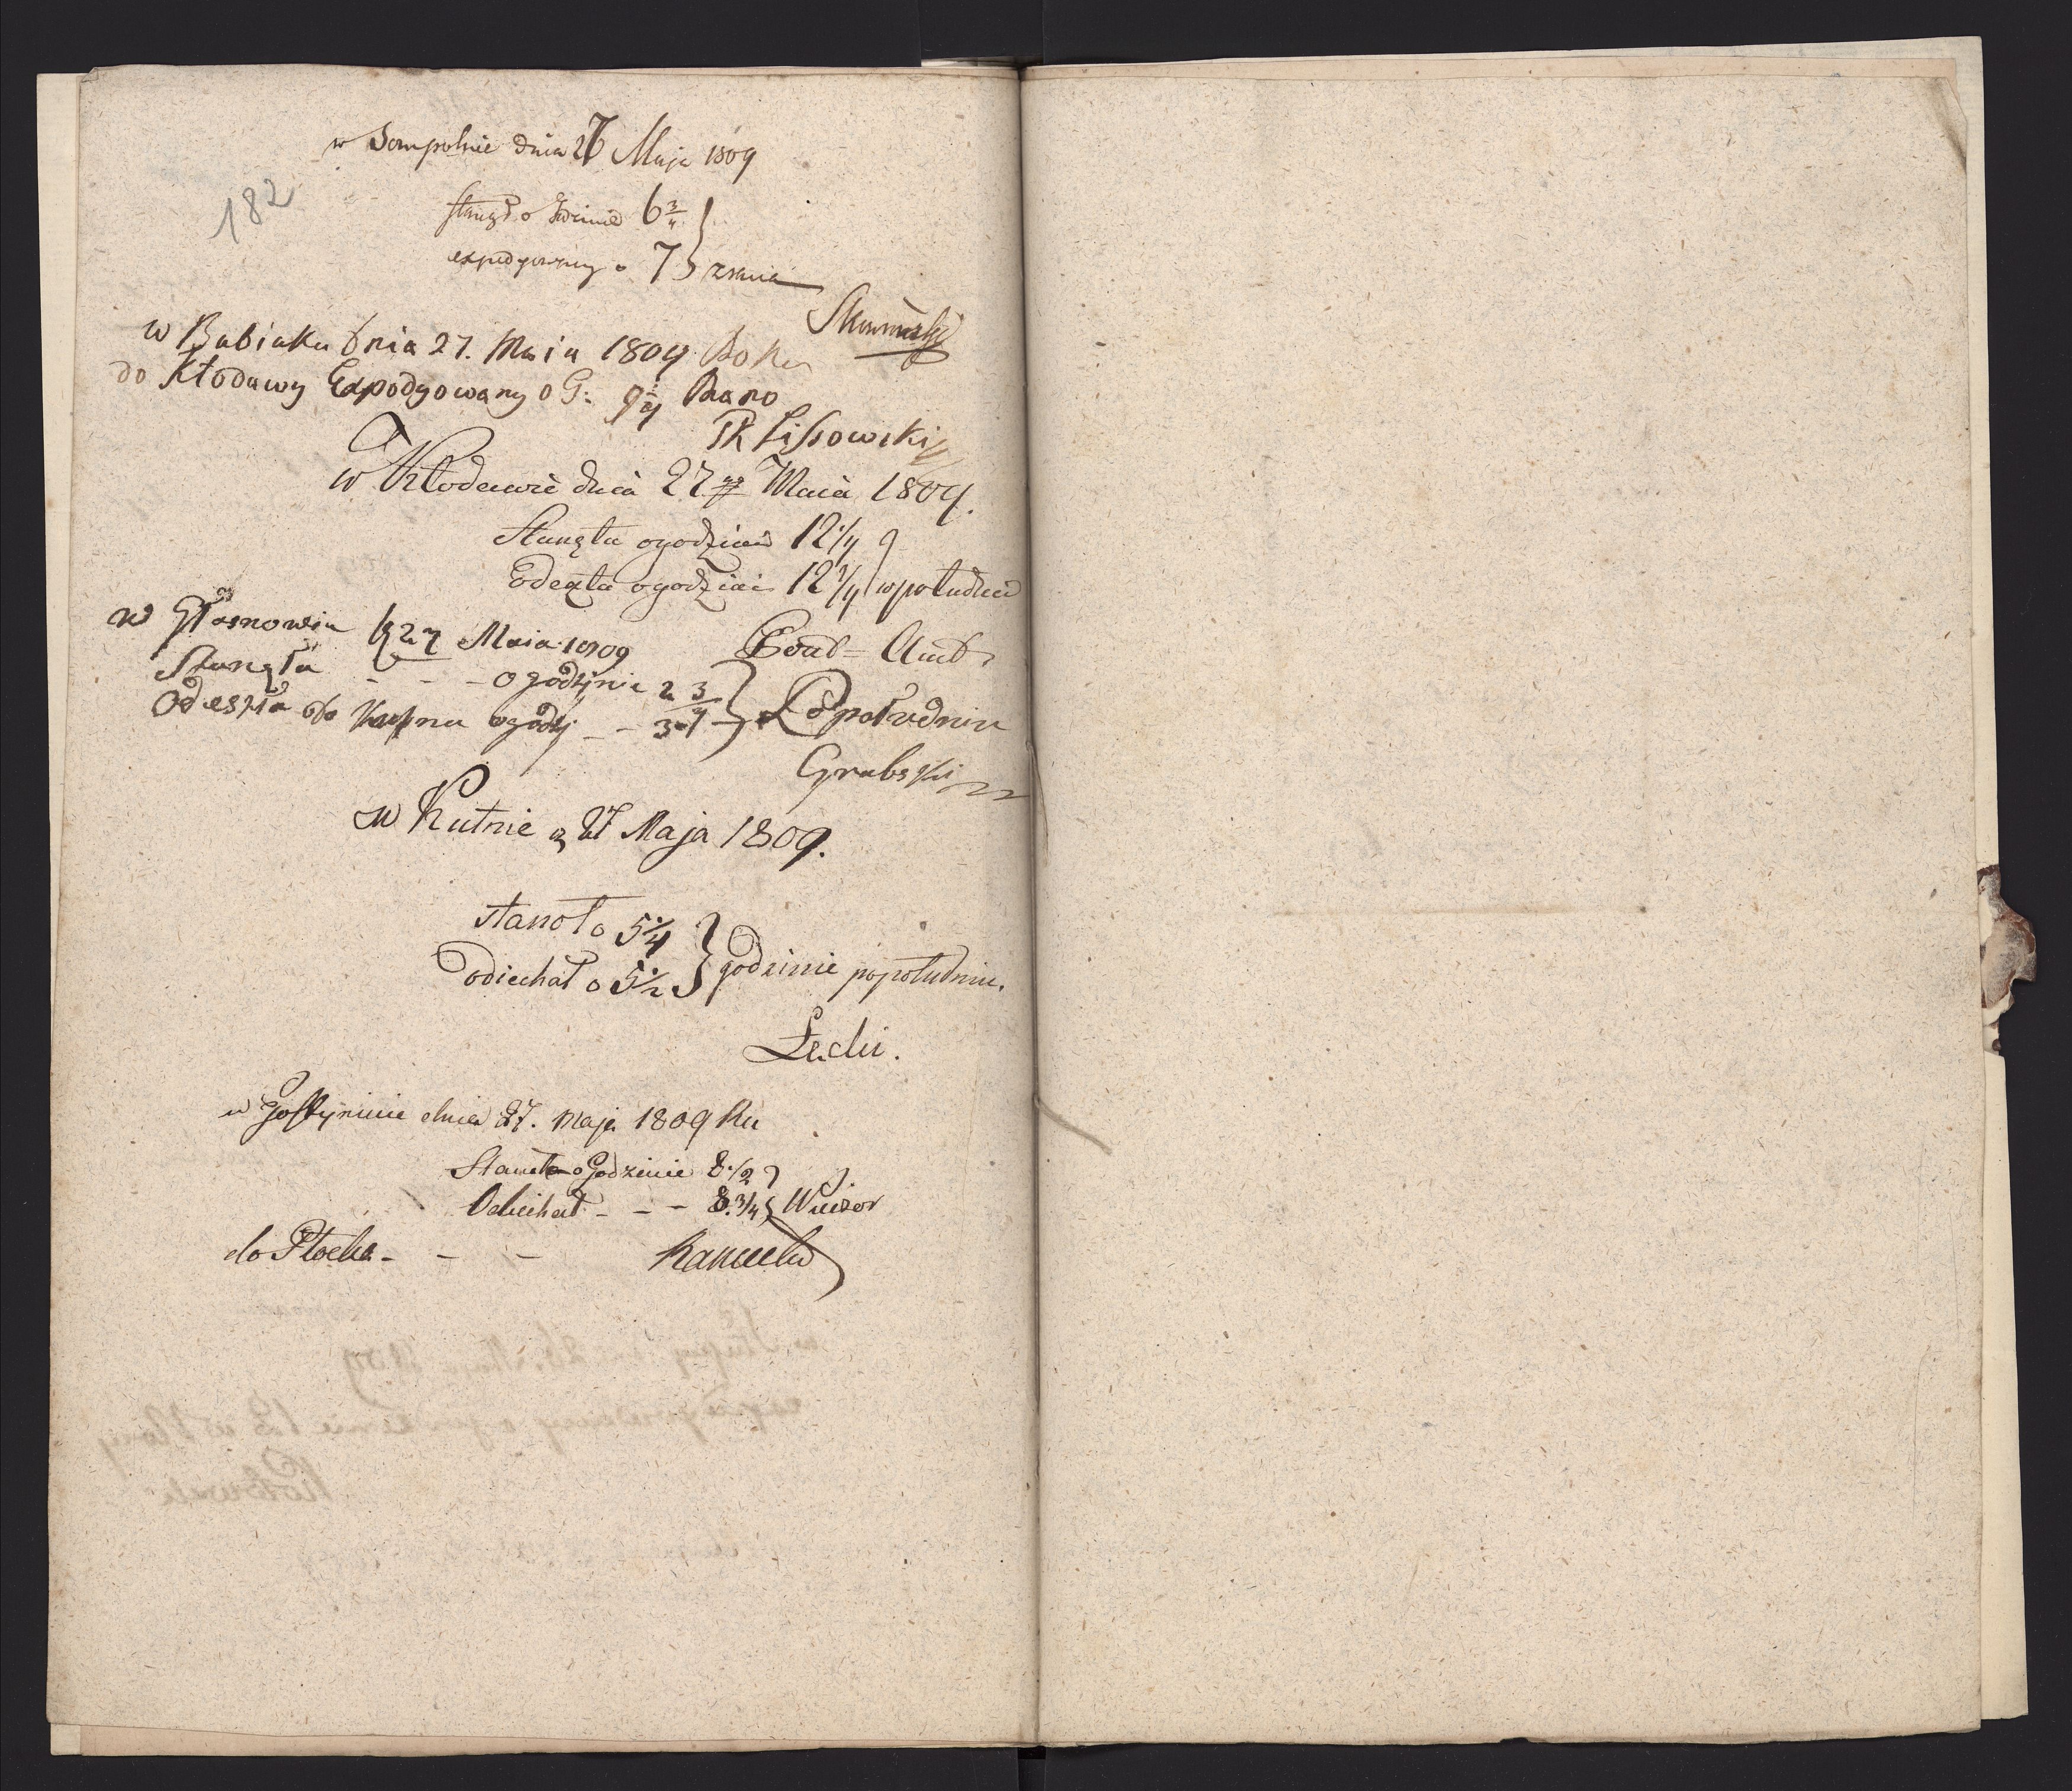 w Sompolnie dnia 27 Maja 1809
182
stanął o Godzinie 6 3/4
expedyowany o 7 } zrana
w Babiaku dnia 27. Maia 1809 Roku
do Kłodawy Expedyowany o G: 9 1/4 Rano
PK Lissowski
w Kłodawie dnia 27go Maia 1809.
Stanęła o godzinie 12 1/4
Odeszła o godzinie 12 3/4 } w południe
Post Amt
w Głasnowie d 27 Maia 1809
Stanęła - - - o godzinie 2 3/4
Odeszła do Kutna o godz - - 3 } Popołudniu
Grabski
w Kutnie d 27 Maja 1809.
stanoł o 5 1/4
odiechał o 5 1/2 } godzinie popołudniu.
w Gostyninie dnia 27. Maja 1809 Ru
Staneła o Godzinie 8 1/2
Odiechał - - - 8. 3/4 } Wieczor
do Płocka - - -